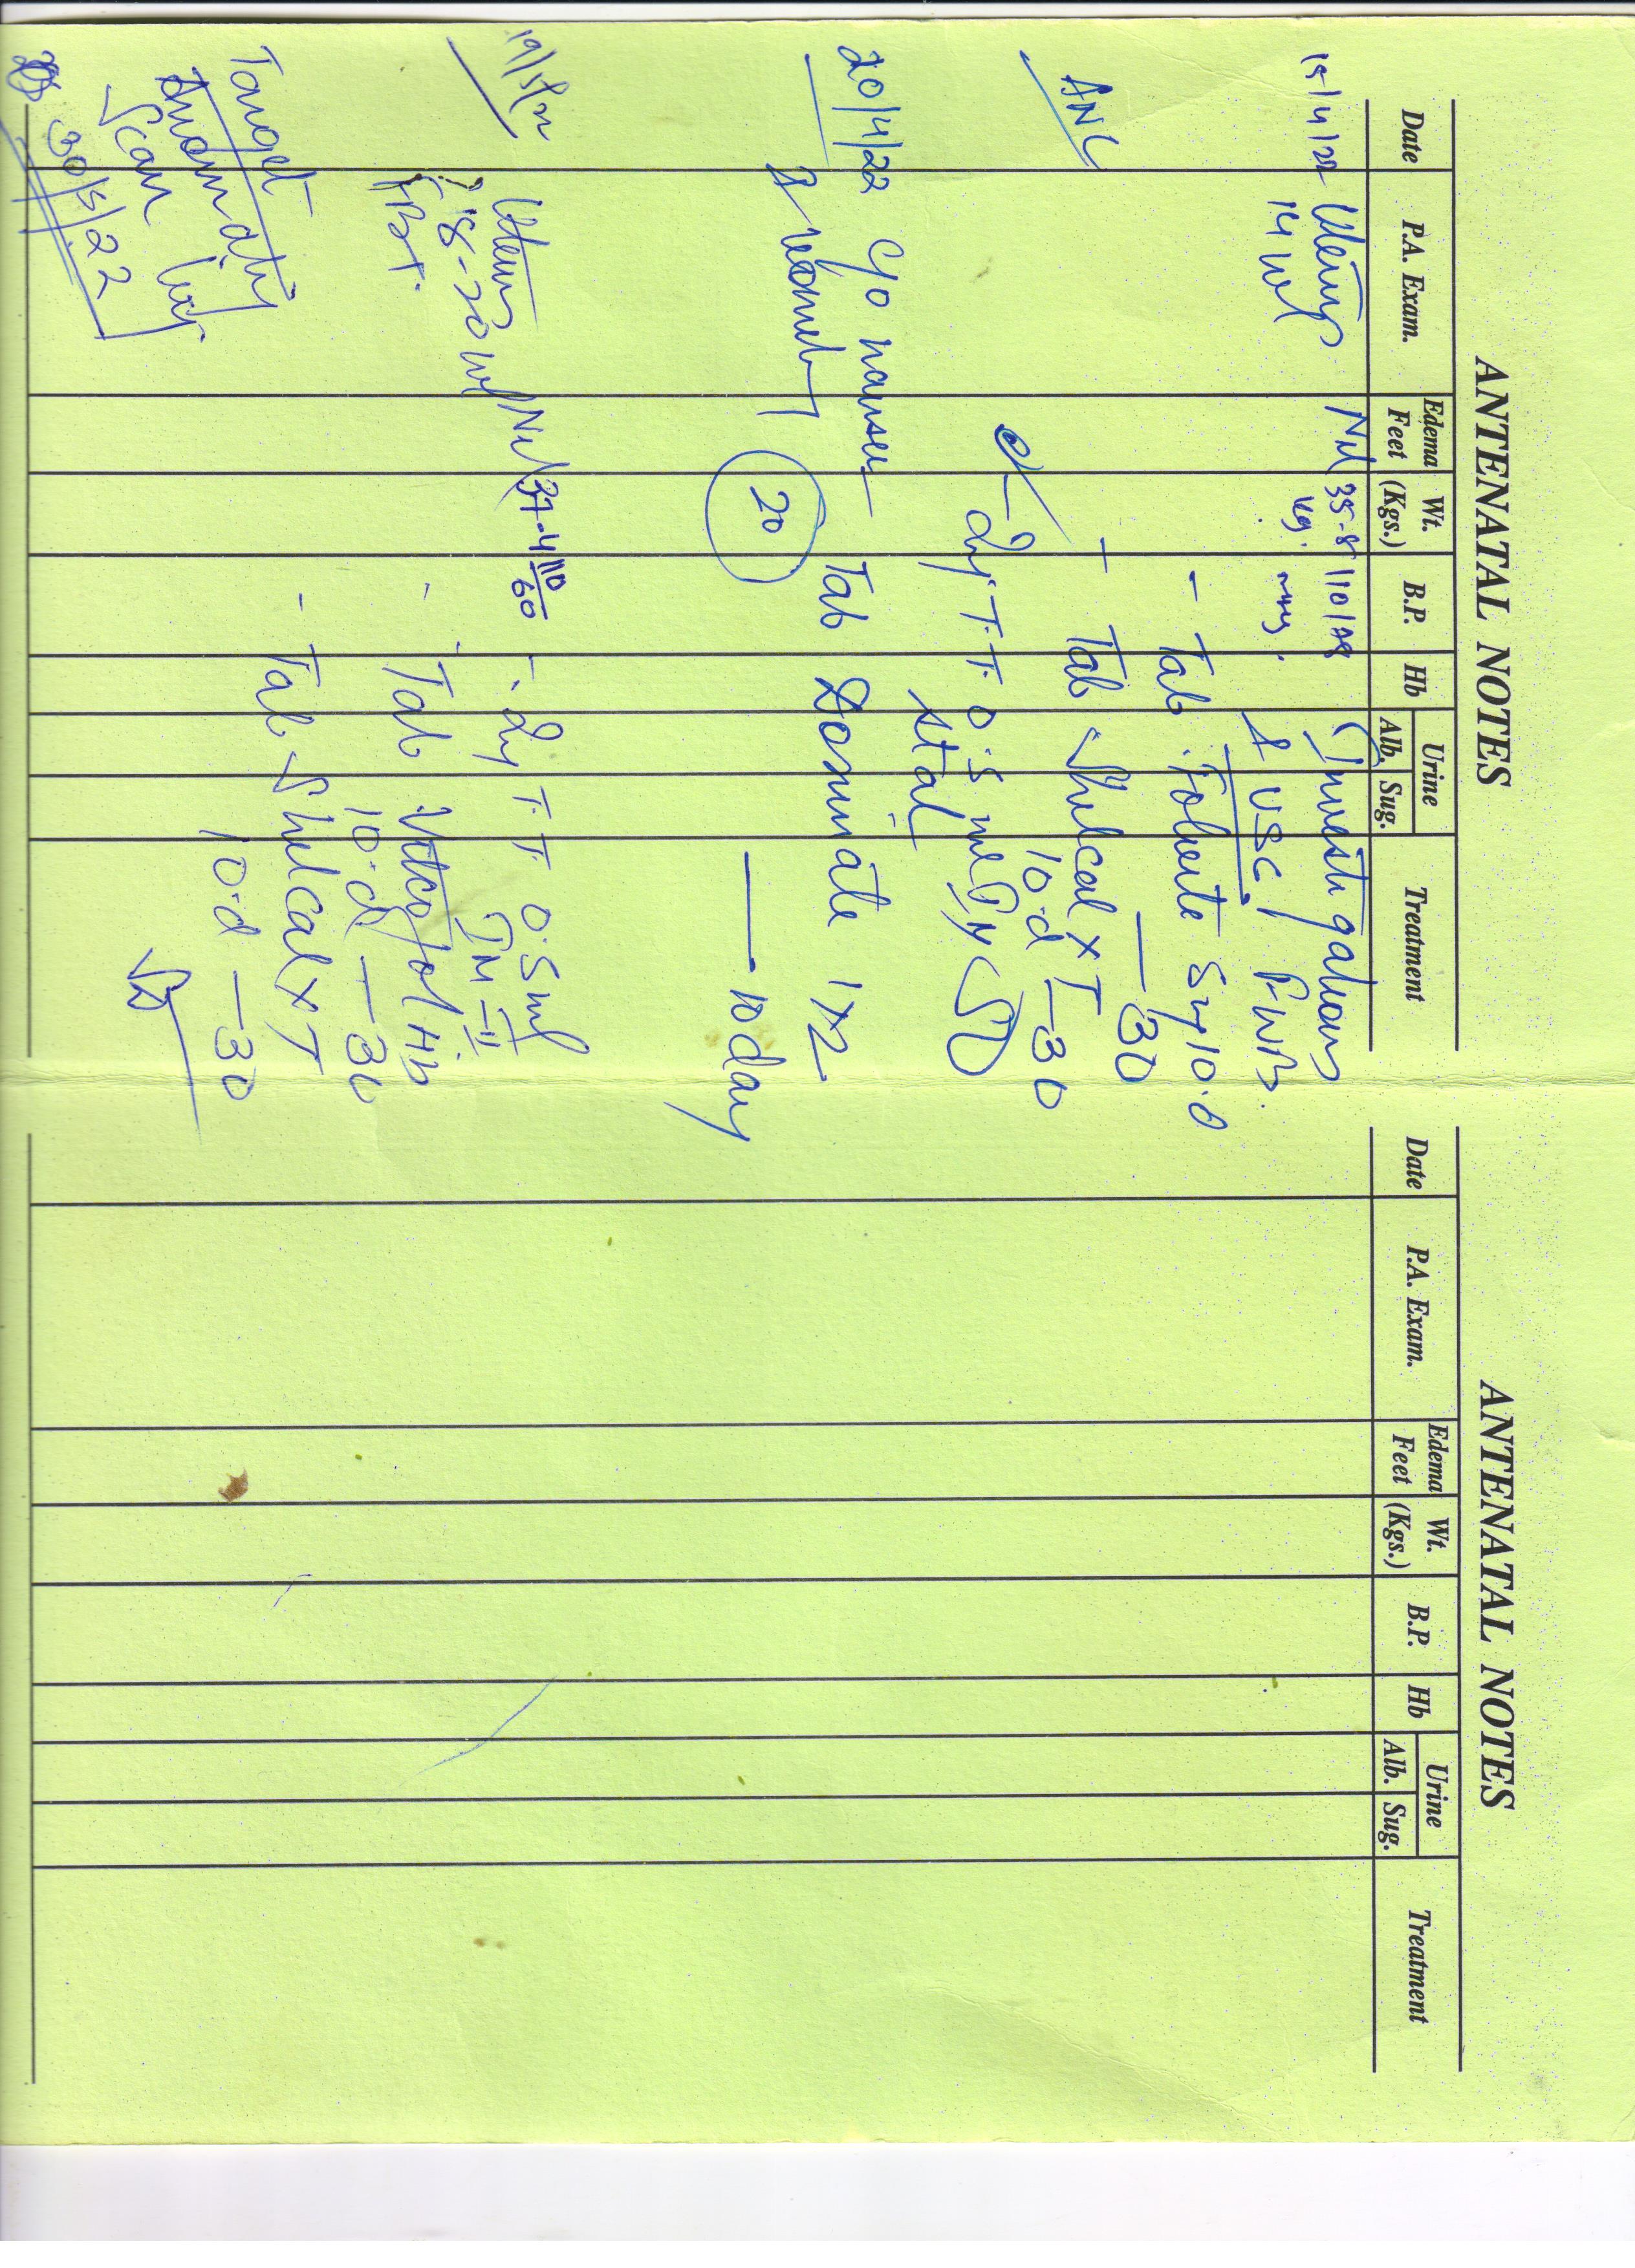 ANTENATAL NOTES
Date P.A. Exam. Edema Feet Wt. (Kgs.) B.P. Hb Urine Alb. Sug. Treatment
15/4/22 Uterus Nil 35-8 110/ Investigations
14 wk kg. & USG, PWB.
- Tab Folvite 5mg 10.d
— 30
ANC Tab Shelcal XT
10.d — 30
Inj. T.T. 0.5 ml IM
stat
20/4/22 C/o nausea Tab Doxinate 1x2
& vomiting 20 — 10 day
19/5/22 Uterus Nil 37-4 110/60 - Inj T.T. 0.5ml
? 18-20 wk IM - II
Tab
10.d — 30
Target - Tab Shelcal XT
Anomaly 10.d — 30
Scan
30/5/22
ANTENATAL NOTES
Date P.A. Exam. Edema Feet Wt. (Kgs.) B.P. Hb Urine Alb. Sug. Treatment